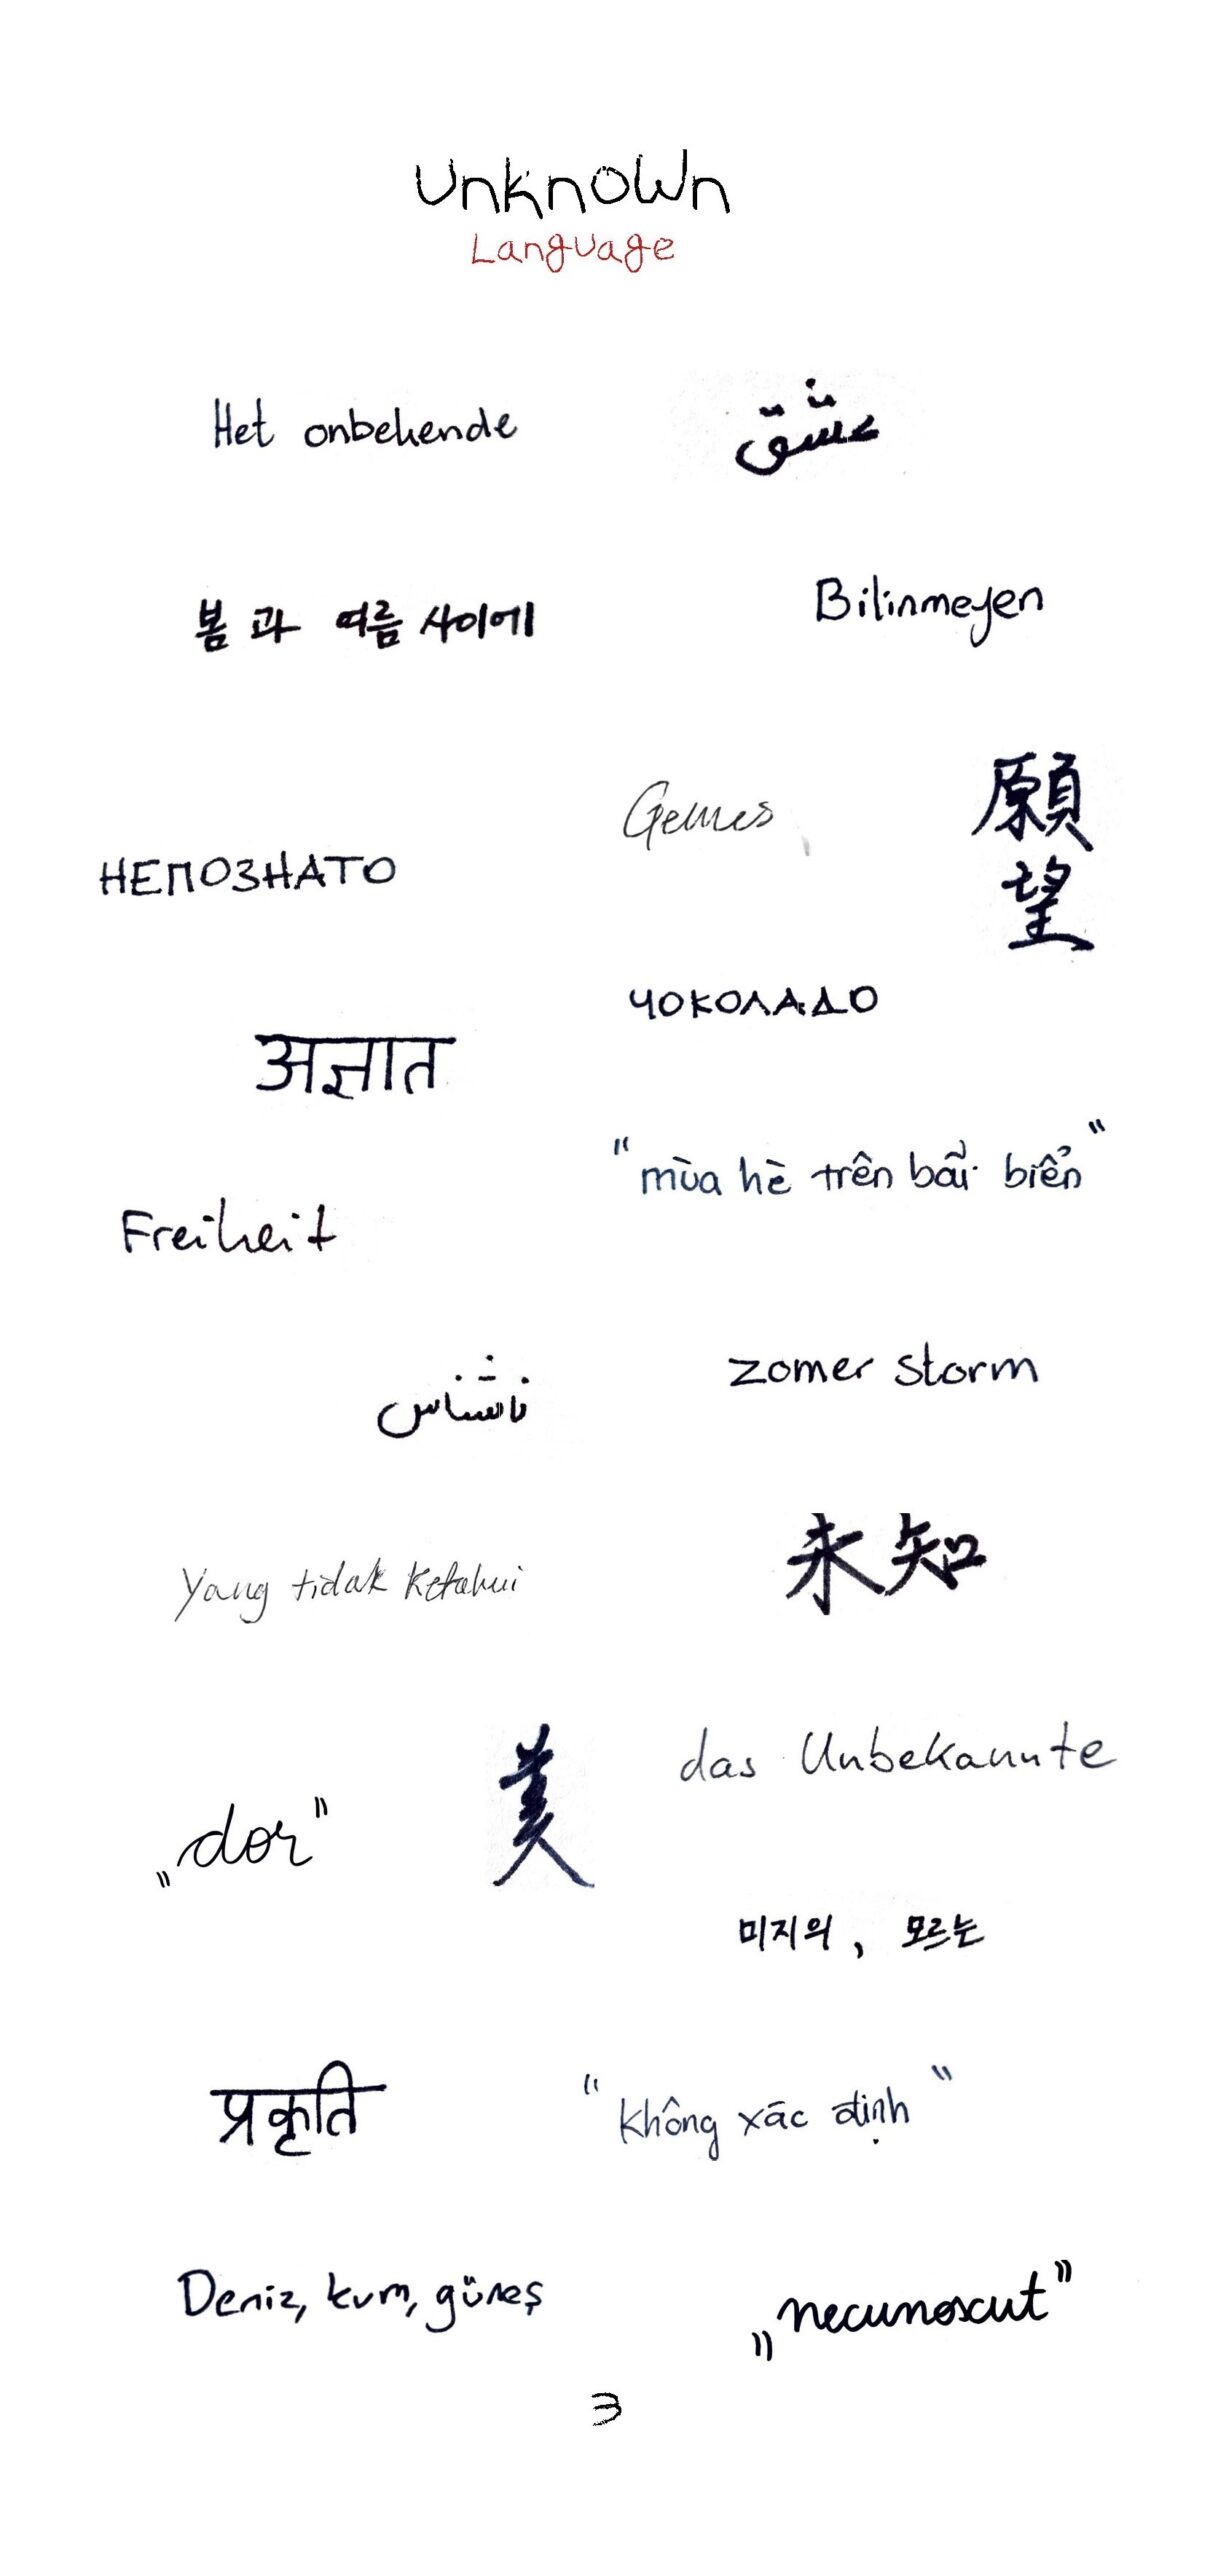 Unknown
Language
Het onbekende
عشق
봄 과 여름 사이에
Bilinmeyen
Gemes
願
望
НЕПОЗНАТО
ЧОКОЛАДО
अज्ञात
"mùa hè trên bãi biển"
Freiheit
zomer storm
ناشناس
未知
Yang tidak ketahui
das Unbekannte
„dor"
美
미지의, 모르는
प्रकृति
"không xác định"
Deniz, kum, güneş
„necunoscut"
3